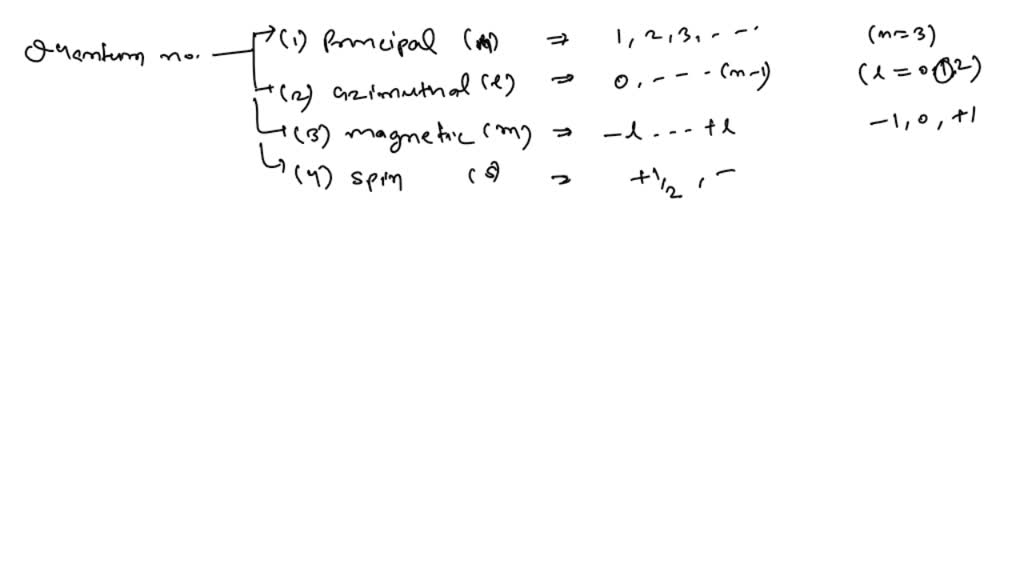 Quantum no. (1) Principal (n) ⇒ 1, 2, 3, - - -- (n=3)
(2) azimuthal (l) ⇒ 0, - - - - (n-1) (l = 0, 1, 2)
(3) magnetic (m) ⇒ -l ... +l -1, 0, +1
(4) spin (s) ⇒ +1/2, -